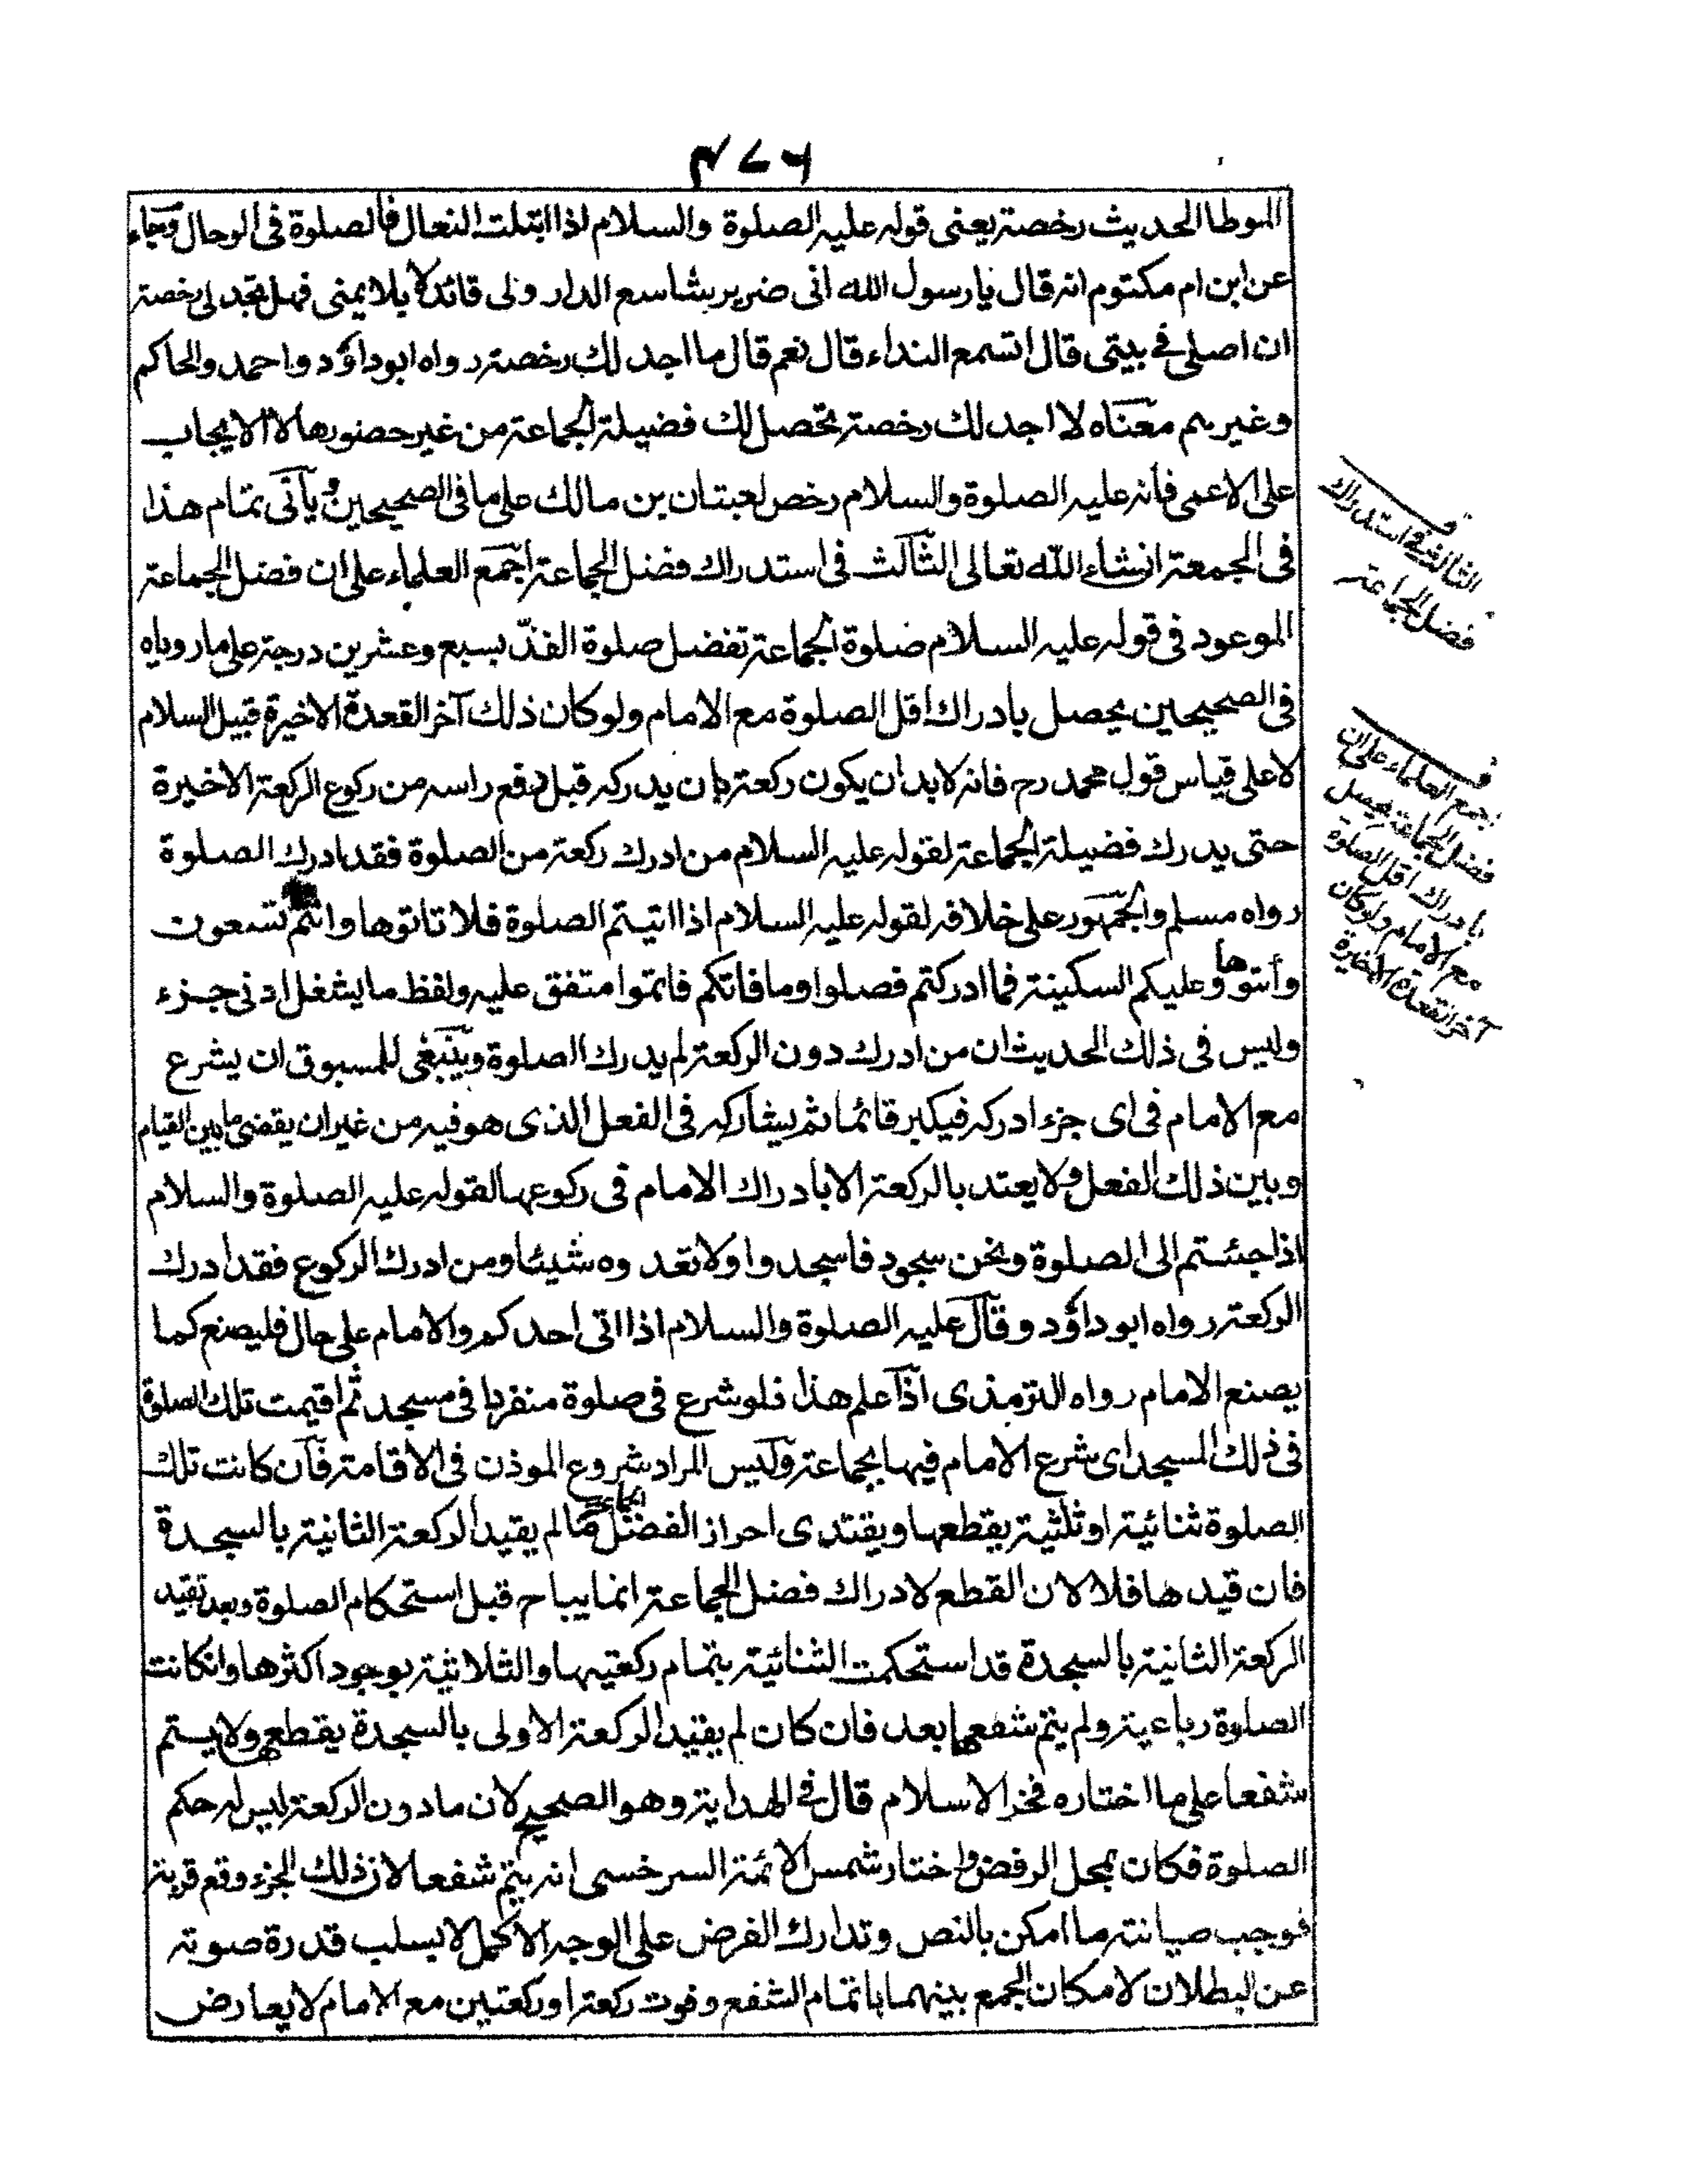 ۴۷۶
الموطا الحديث رخصة يعنى قوله عليه الصلوة والسلام اذا ابتلت النعال فالصلوة فى الرحال وجاء
عن ابن ام مكتوم انه قال يا رسول الله انى ضرير شاسع الدار ولى قائد لا يلايمنى فهل تجد لى رخصة
ان اصلى فے بيتى قال اتسمع النداء قال نعم قال ما اجد لك رخصة رواه ابو داؤد واحمد والحاكم
وغيرهم معناه لا اجد لك رخصة تحصل لك فضيلة الجماعة من غير حضورها لا الايجاب
على الاعمى فانه عليه الصلوة والسلام رخص لعتبان بن مالك على ما فى الصحيحين وياتى تمام هذا
فى الجمعة انشاء الله تعالى الثالث فى استدراك فضل الجماعة اجمع العلماء على ان فضل الجماعة
الموعود فى قوله عليه السلام صلوة الجماعة تفضل صلوة الفذّ بسبع وعشرين درجة على ما روياه
فى الصحيحين يحصل بادراك اقل الصلوة مع الامام ولو كان ذلك آخر القعدة الاخيرة قبيل السلام
لا على قياس قول محمد رح فانه لا بد ان يكون ركعة بان يدركه قبل رفع راسه من ركوع الركعة الاخيرة
حتى يدرك فضيلة الجماعة لقوله عليه السلام من ادرك ركعة من الصلوة فقد ادرك الصلوة
رواه مسلم والجمهور على خلافه لقوله عليه السلام اذا اتيتم الصلوة فلا تاتوها وانتم تسعون
وأتوها وعليكم السكينة فما ادركتم فصلوا وما فاتكم فاتموا متفق عليه ولفظ ما يشغل ادنى جزء
وليس فى ذلك الحديث ان من ادرك دون الركعة لم يدرك الصلوة وينبغى للمسبوق ان يشرع
مع الامام فى اى جزء ادركه فيكبر قائما ثم يشاركه فى الفعل الذى هو فيه من غير ان يقضى ما بين القيام
وبين ذلك الفعل ولا يعتد بالركعة الا بادراك الامام فى ركوعها لقوله عليه الصلوة والسلام
اذا جئتم الى الصلوة ونحن سجود فاسجدوا ولا تعدوه شيئا ومن ادرك الركوع فقد ادرك
الركعة رواه ابو داؤد وقال عليه الصلوة والسلام اذا اتى احدكم والامام على حال فليصنع كما
يصنع الامام رواه الترمذى اذا علم هذا فلو شرع فى صلوة منفردا فى مسجد ثم اقيمت تلك الصلوة
فى ذلك المسجد اى شرع الامام فيها بجماعة وليس المراد شروع الموذن فى الاقامة فان كانت تلك
الصلوة ثنائية او ثلثية يقطعها ويقتدى احراز الفضل الجماعة ما لم يقيد الركعة الثانية بالسجدة
فان قيدها فلا لان القطع لادراك فضل الجماعة انما يباح قبل استحكام الصلوة وبعد تقييد
الركعة الثانية بالسجدة قد استحكمت الثنائية بتمام ركعتيها والثلاثية بوجود اكثرها وانكانت
الصلوة رباعية ولم يتم شفعها بعد فان كان لم يقيد الركعة الاولى بالسجدة يقطعها ولا يستم
شفعا على ما اختاره فخر الاسلام قال فے الهداية وهو الصحيح لان ما دون الركعة ليس له حكم
الصلوة فكان بمحل الرفض واختار شمس الائمة السرخسى انه يتم شفعا لان ذلك الجزء وقع قربة
فوجب صيانته ما امكن بالنص وتدارك الفرض على الوجه الاكمل لا يسلب قدرة صونه
عن البطلان لامكان الجمع بينهما باتمام الشفع وفوت ركعة او ركعتين مع الامام لا يعارض
الثالث فے استدراك
فضل الجماعة
اجمع العلماء على ان
فضل الجماعة يحصل
بادراك اقل الصلوة
مع الامام ولو كان
آخر القعدة الاخيرة